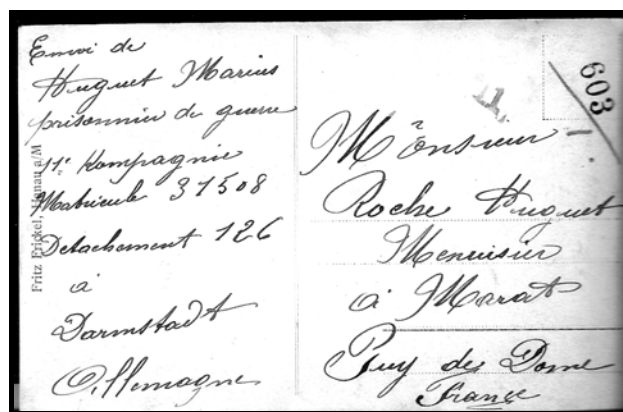 Envoi de
Huguet Marius
prisonnier de guerre
11e Kompagnie
Matricule 31508
Detachement 126
à
Darmstadt
Allemagne
Fritz Frickel, Hanau a/M
603
Monsieur
Roche Huguet
Menuisier
à Marat
Puy de Dome
France